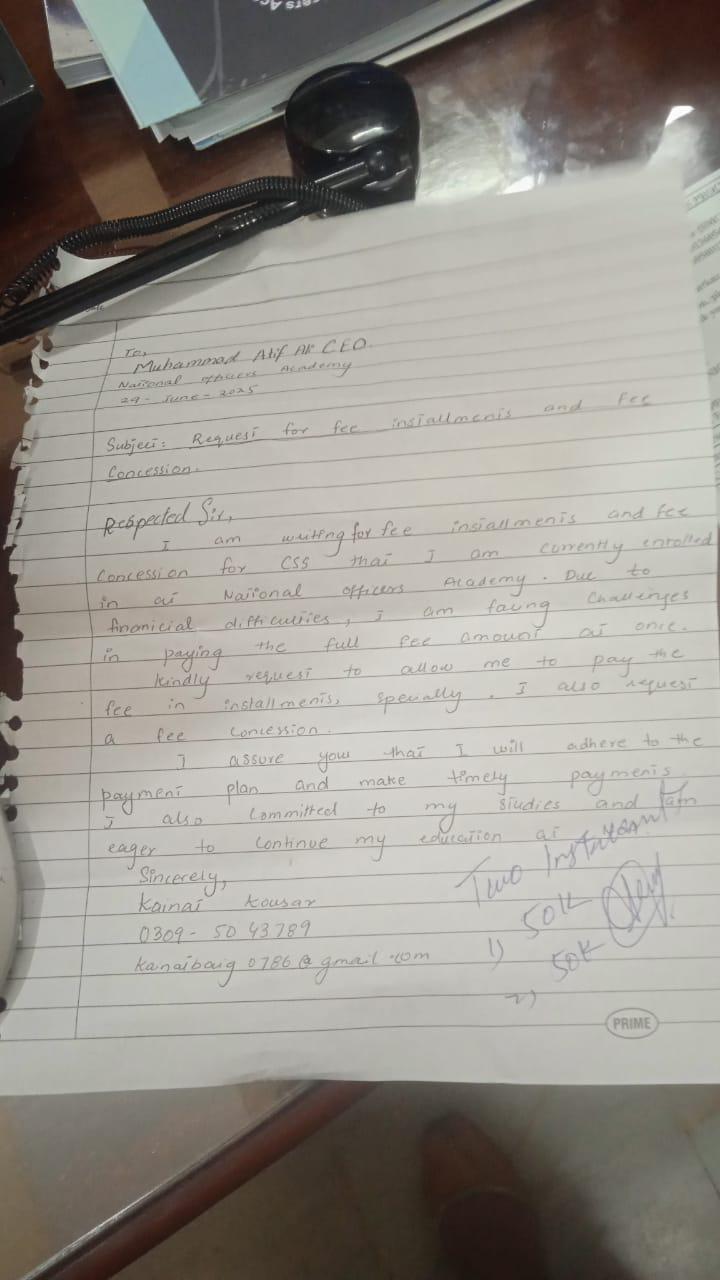 To,
Muhammad Atif Ali CEO.
National officers Academy
29 - June - 2025
Subject: Request for fee installments and fee
Concession.
Respected Sir,
I am writing for fee installments and fee
Concession for CSS that I am currently enrolled
in at National officers Academy. Due to
finanicial difficulties, I am facing challenges
in paying the full fee amount at once.
kindly request to allow me to pay the
fee in installments, specially. I also request
a fee concession.
I assure your that I will adhere to the
payment plan and make timely payments.
I also committed to my studies and I am
eager to continue my education at
Sincerely,
Kainat Kousar
0309-5043789
kanatbaig0786@gmail.com
Two
1) 50K
2) 50K
PRIME